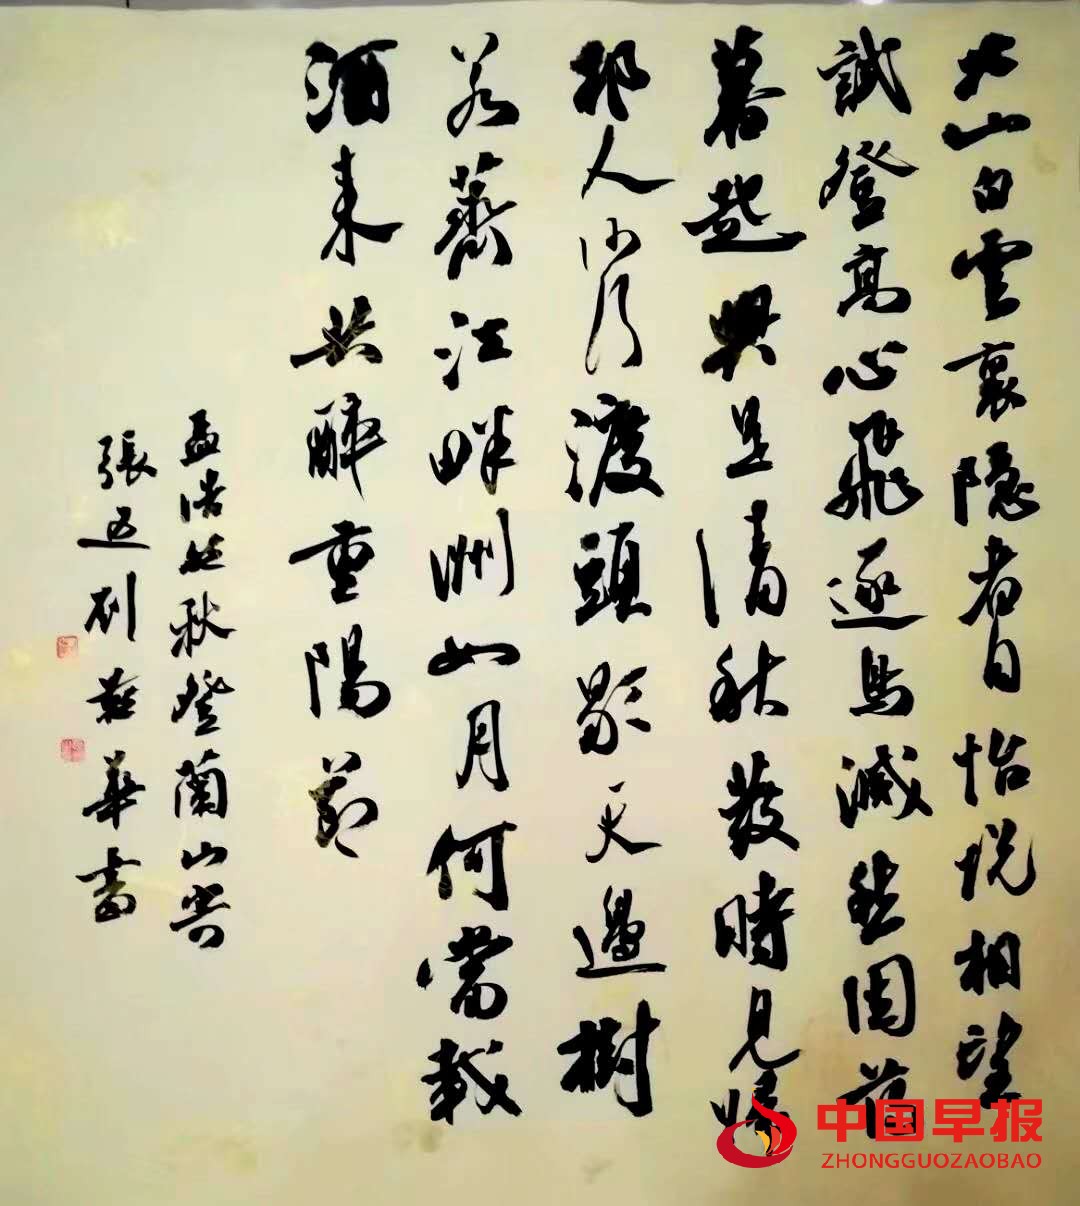 北山白雲裏隱者自怡悦相望
試登高心飛逐鳥滅愁因薄
暮起興是清秋發時見歸
邨人沙行渡頭歇天邊樹
若薺江畔洲如月何當載
酒来共醉重陽節
孟浩然秋登蘭山寄
張五劉華書
中国早报
ZHONGGUOZAOBAO